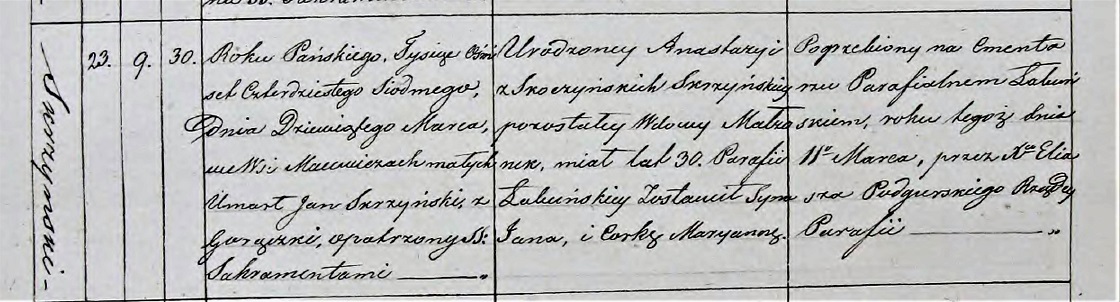 Skrzynski -
23.
9.
30.
Roku Pańskiego, Tysiąc Ośm
set Czterdziestego Siodmego,
dnia Dziewiątego Marca,
we Wsi Macewiczach małych
Umarł Jan Skrzyński, z
Gorączki, opatrzony SS:
Sakramentami — „
Urodzoney Anastazyi
z Skoczyńskich Skrzyńskiey
pozostałey Wdowy Małżo
nek, miał lat 30. Parafii
Łabuńskiey Zostawił Syna
Jana, i Corkę Maryannę.
Pogrzebiony na Cmenta
rzu Parafialnem Łabuń
skiem, roku tegoż dnia
11º Marca, przez Xa Elia
sza Podgurskiego Rządcy
Parafii — „